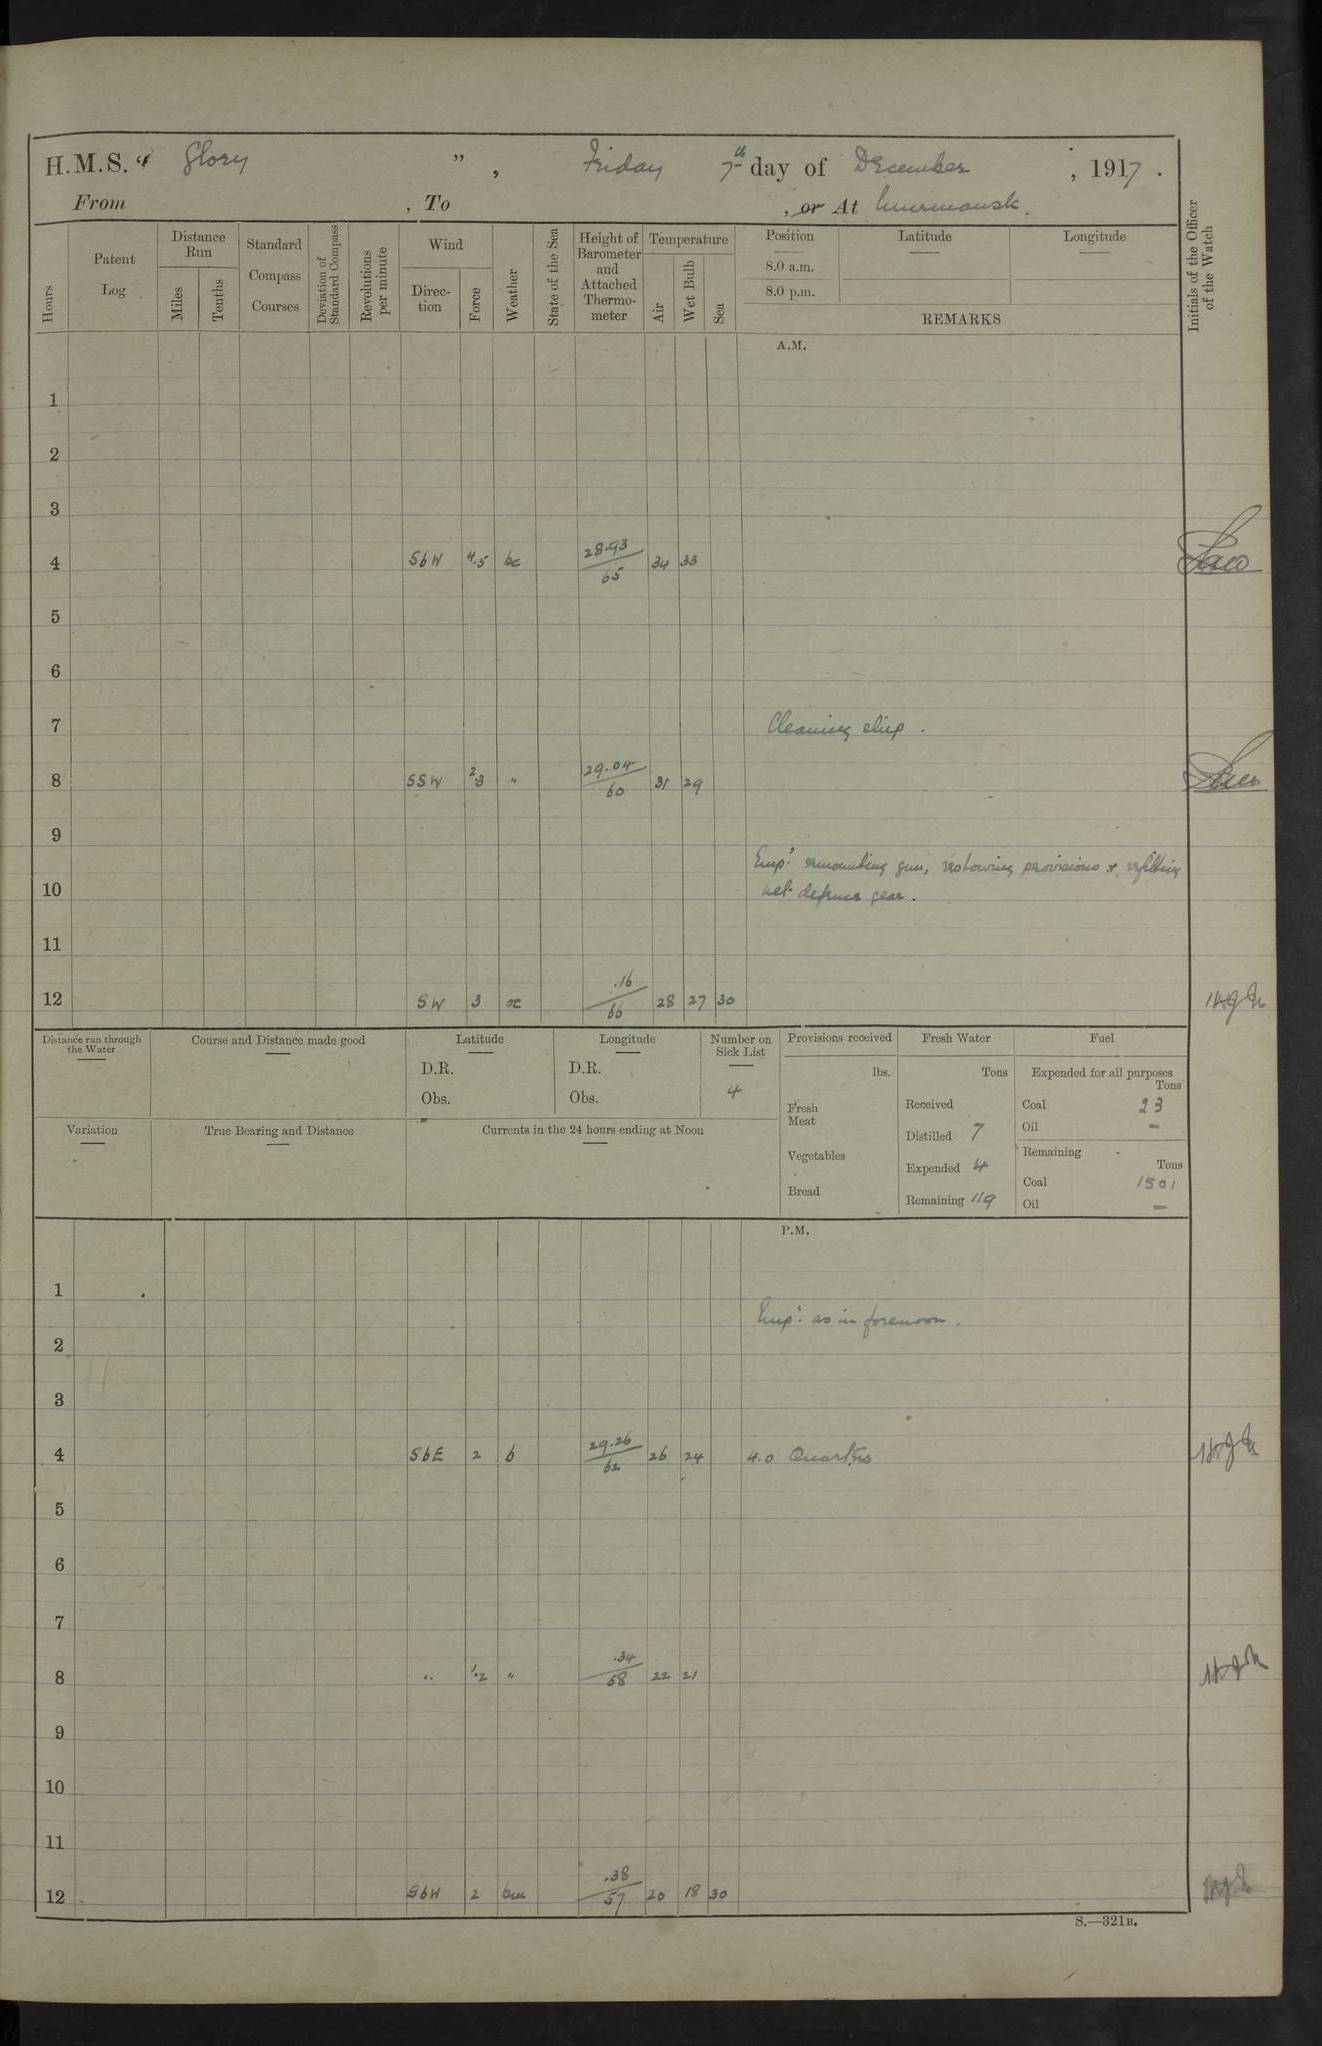 H.M.S. " Glory ", Friday 7th day of December, 1917.
From , To , or At Murmansk.
Hours
Patent Log
Distance Run
Miles
Tenths
Standard Compass Courses
Deviation of Standard Compass
Revolutions per minute
Wind
Direc-tion
Force
Weather
State of the Sea
Height of Barometer and Attached Thermo-meter
Temperature
Air
Wet Bulb
Sea
Position
8.0 a.m.
8.0 p.m.
Latitude
Longitude
REMARKS
Initials of the Officer of the Watch
A.M.
1
2
3
4 SbW 4.5 bc 28.93/65 34 33
5
6
7 Cleaning ship.
8 SSW 2.3 " 29.04/60 31 29
9
Emp: remounting gun, restowing provisions & refitting
10 net defence gear.
11
12 SW 3 bc .16/66 28 27 30
Distance run through the Water
Course and Distance made good
Latitude
D.R.
Obs.
Longitude
D.R.
Obs.
Number on Sick List
4
Provisions received
lbs.
Fresh Meat
Vegetables
Bread
Fresh Water
Tons
Received
Distilled 7
Expended 4
Remaining 119
Fuel
Expended for all purposes
Tons
Coal 23
Oil –
Remaining
Tons
Coal 1501
Oil –
Variation
True Bearing and Distance
Currents in the 24 hours ending at Noon
P.M.
1
Emp: as in forenoon.
2
3
4 SbE 2 b 29.26/62 26 24 4.0 Quarters
5
6
7
8 " 1.2 " .34/58 22 21
9
10
11
12 SbW 2 bm .38/57 20 18 30
S.—321B.